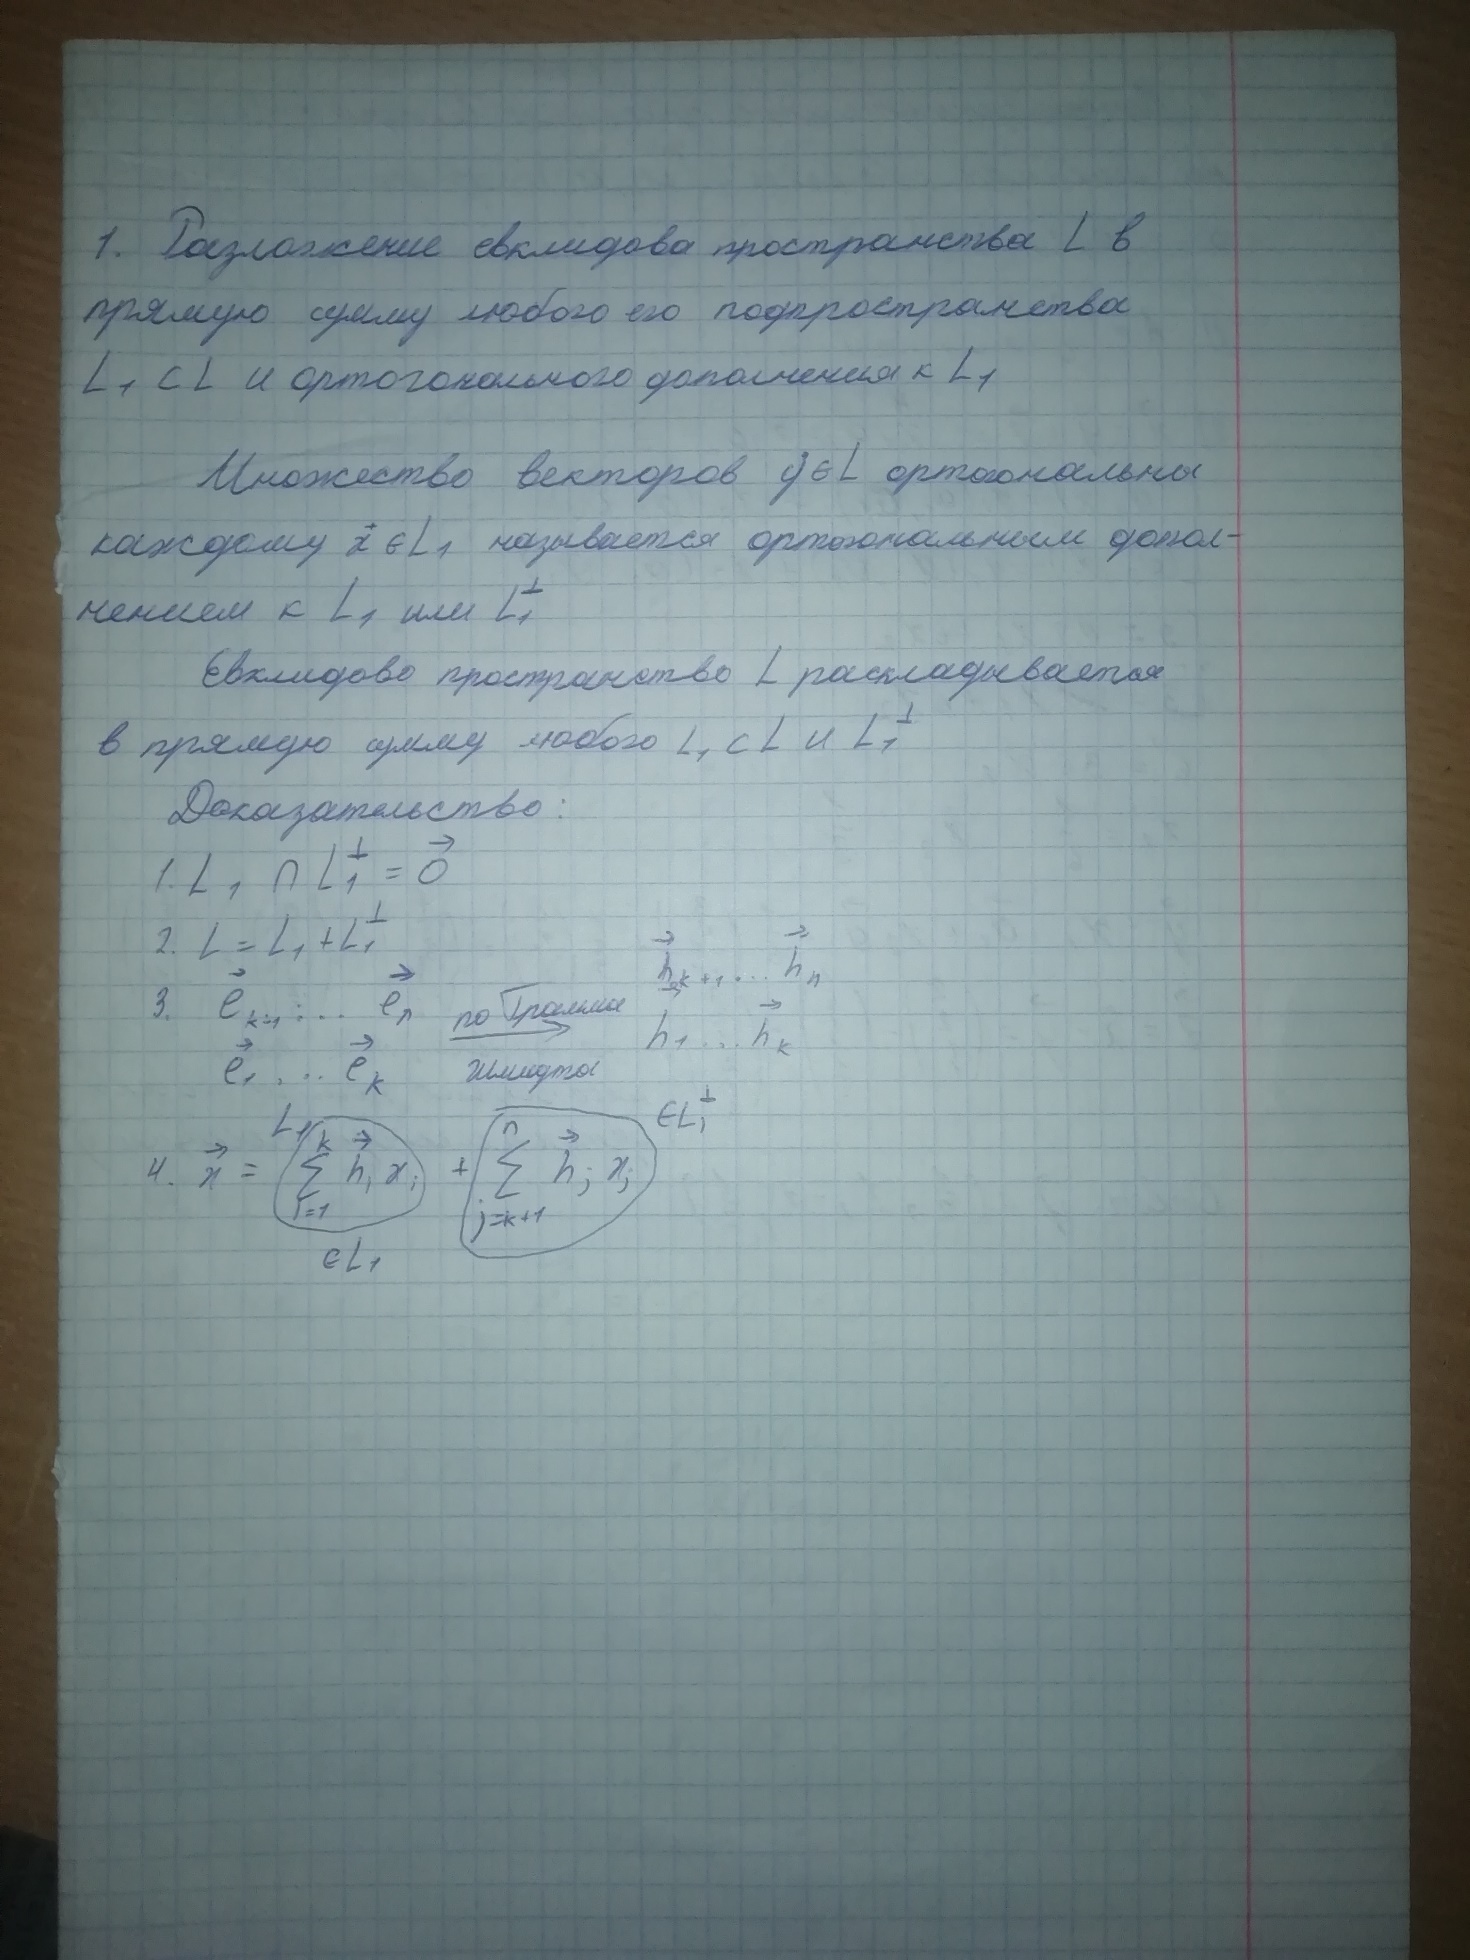 1. Разложение евклидова пространства L в
прямую сумму любого его подпространства
L₁ ⊂ L и ортогонального дополнения к L₁
Множество векторов y⃗ ∈ L ортогональны
каждому x⃗ ∈ L₁ называется ортогональным допол-
нением к L₁ или L₁^⊥
Евклидово пространство L раскладывается
в прямую сумму любого L₁ ⊂ L и L₁^⊥
Доказательство:
1. L₁ ∩ L₁^⊥ = 0⃗
2. L = L₁ + L₁^⊥
3. e⃗ₖ₊₁ ... e⃗ₙ по Грамма h⃗ₖ₊₁ ... h⃗ₙ
e⃗₁ ... e⃗ₖ Шмидта h⃗₁ ... h⃗ₖ
L₁ ∈ L₁^⊥
4. x⃗ = ∑_{i=1}^{k} h⃗ᵢ xᵢ + ∑_{j=k+1}^{n} h⃗ⱼ xⱼ
∈ L₁